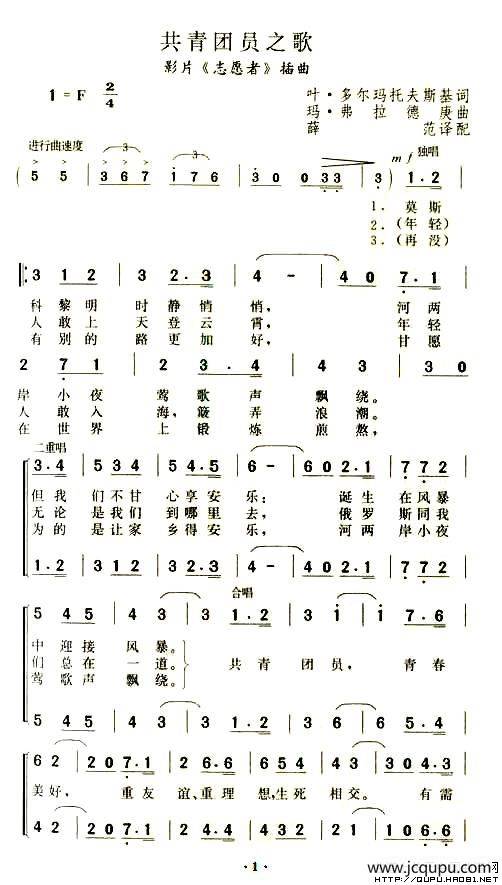 共青团员之歌
影片《志愿者》插曲
1=F 2/4
叶·多尔玛托夫斯基词
玛·弗拉德庚曲
薛范译配
进行曲速度
mf 独唱
( 5 5 | 3 6 7 | 1 7 6 | 3 0 0 3 3 | 3 ) 1.2 |
1. 莫斯
2.(年轻)
3.(再没)
3 1 2 | 3 2.3 | 4 - | 4 0 7.1 |
科黎明时静悄悄,河两
人敢上天登云霄,年轻
有别的路更加好,甘愿
2 7 1 | 2 3.4 | 4 3 | 3 0
岸小夜莺歌声飘绕。
人敢入海,簸弄浪潮。
在世界上锻炼煎熬,
二重唱
3.4 | 5 3 4 | 5 4.5 | 6 - | 6 0 2.1 | 7 7 2 |
但我们不甘心享安乐;诞生在风暴
无论是我们到哪里去,俄罗斯同我
为的是让家乡得安乐,河两岸小夜
1.2 | 3 1 2 | 3 2.3 | 4 - | 4 0 2.1 | 7 7 2 |
合唱
5 4 5 | 4 3 | 3 1.2 | 3 1 | 1 7.6 |
中迎接风暴。
们总在一道。
莺歌声飘绕。
共青团员,青春
5 4 5 | 4 3 | 3 1.2 | 3 3 | 6 5.4 |
6 2 | 2 0 7.1 | 2 6.6 | 1 5.5 | 4 3 | 3 0 4.3 |
美好,重友谊、重理想,生死相交。有需
4 2 | 2 0 7.1 | 2 2.2 | 2 7.7 | 2 1 | 1 0 6.6 |
·1·
www.jcqupu.com
HTTP://QUPU.HAO81.NET